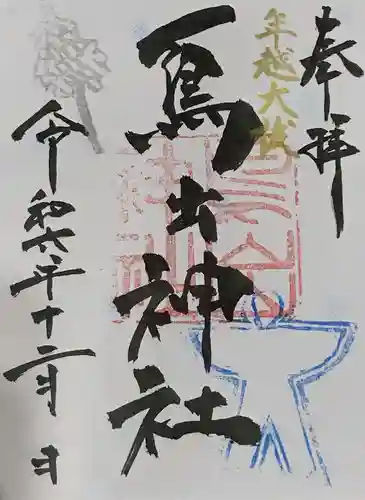 奉拝
年越大祓
鳥出神社
令和六年十二月 日